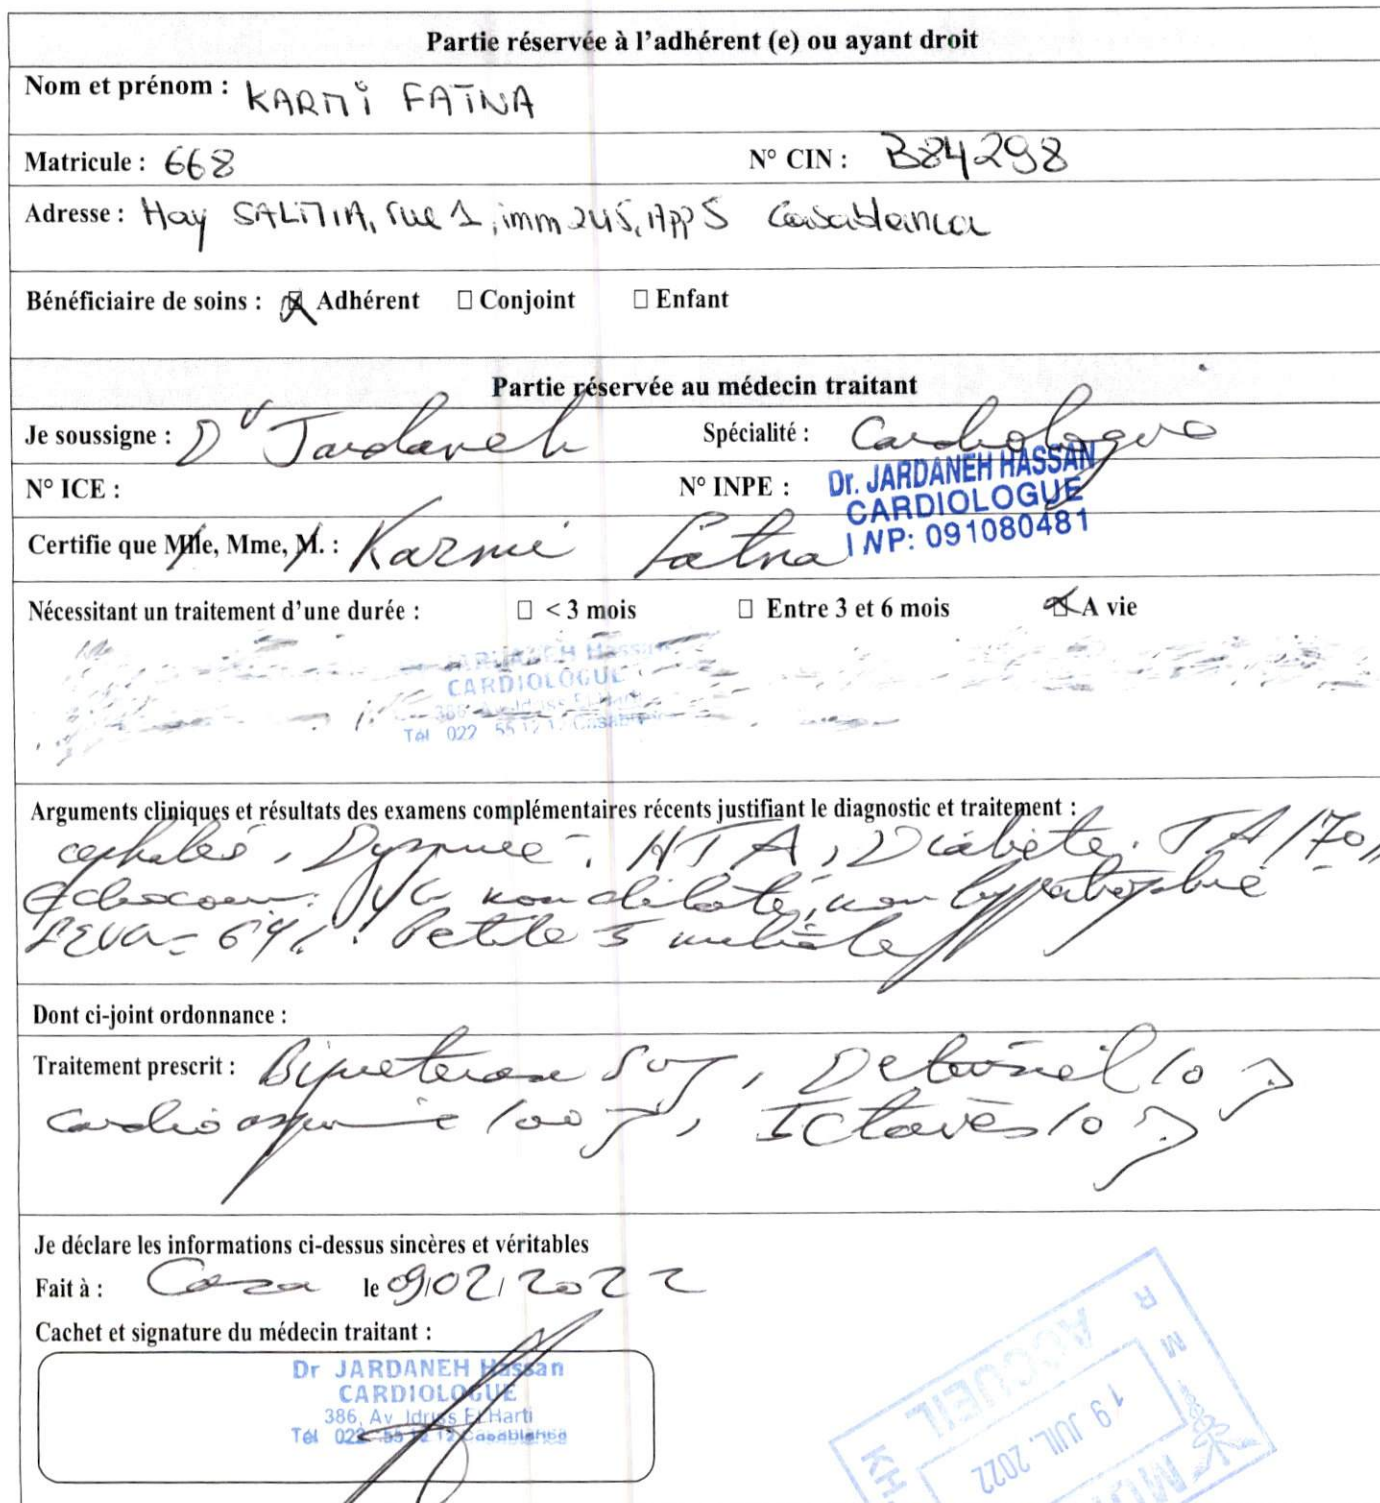 Partie réservée à l'adhérent (e) ou ayant droit
Nom et prénom : KARMI FATNA
Matricule : 668 N° CIN : B84298
Adresse : Hay SALMIA, rue 1, imm 245, App 5 Casablanca
Bénéficiaire de soins : ☒ Adhérent ☐ Conjoint ☐ Enfant
Partie réservée au médecin traitant
Je soussigne : Dr Jardaneh Spécialité : Cardiologue
N° ICE : N° INPE :
Dr. JARDANEH HASSAN
CARDIOLOGUE
INP: 091080481
Certifie que Mlle, Mme, M. : Karmi Fatna
Nécessitant un traitement d'une durée : ☐ < 3 mois ☐ Entre 3 et 6 mois ☒ A vie
JARDANEH Hassan
CARDIOLOGUE
386, Av. Idriss El Harti
Tél 022 55 12 12 Casablanca
Arguments cliniques et résultats des examens complémentaires récents justifiant le diagnostic et traitement :
Dyspnée, HTA, Diabète. TA
non dilaté, non hypertrophié
Petite
Dont ci-joint ordonnance :
Traitement prescrit :
cardioaspirine 100
Je déclare les informations ci-dessus sincères et véritables
Fait à : Casa le 09/02/2022
Cachet et signature du médecin traitant :
Dr JARDANEH Hassan
CARDIOLOGUE
386, Av. Idriss El Harti
Tél 022 55 12 12 Casablanca
ACCUEIL
19 JUIL. 2022